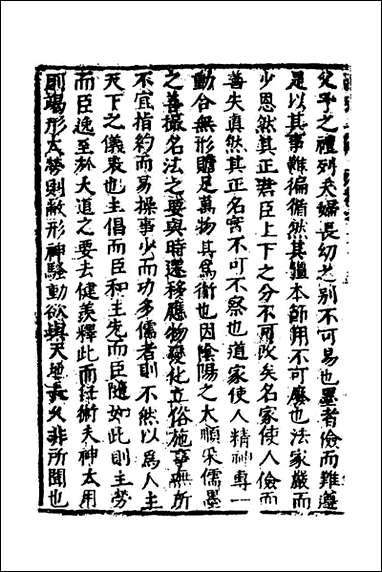 父子之禮列夫婦長幼之別不可易也墨者儉而難遵
是以其事難徧循然其彊本節用不可廢也法家嚴而
少恩然其正君臣上下之分不可改矣名家使人儉而
善失真然其正名實不可不察也道家使人精神專一
動合無形贍足萬物其爲術也因陰陽之大順采儒墨
之善撮名法之要與時遷移應物變化立俗施事無所
不宜指約而易操事少而功多儒者則不然以爲人主
天下之儀表也主倡而臣和主先而臣隨如此則主勞
而臣逸至於大道之要去健羨釋此而任術夫神太用
則竭形太勞則敝形神騷動欲與天地長久非所聞也